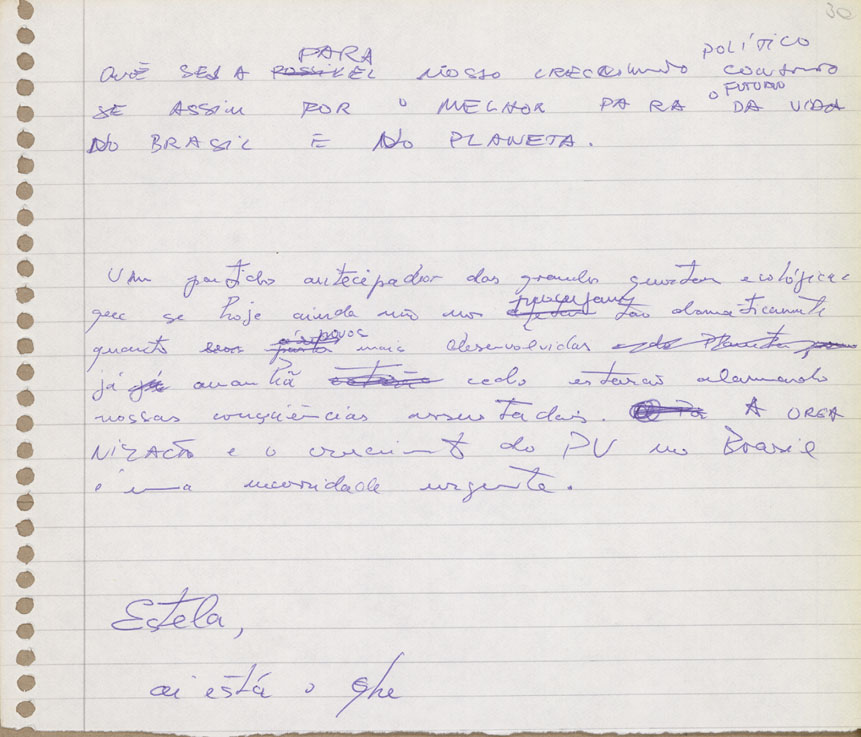 30
PARA POLÍTICO
QUE SEJA POSSIVEL NOSSO CRESCIMENTO
O FUTURO
SE ASSIM POR O MELHOR PARA DA VIDA
NO BRASIL E NO PLANETA.
Um partido antecipador das grandes questões ecológicas
que se hoje ainda não nos tão dramaticamente
povos
quanto mais desenvolvidos
já amanhã cedo estarão alarmando
nossas consciências assustadas. A ORGA
NIZAÇÃO e o crescimento do PV no Brasil
é uma necessidade urgente.
Estela,
ai está o que